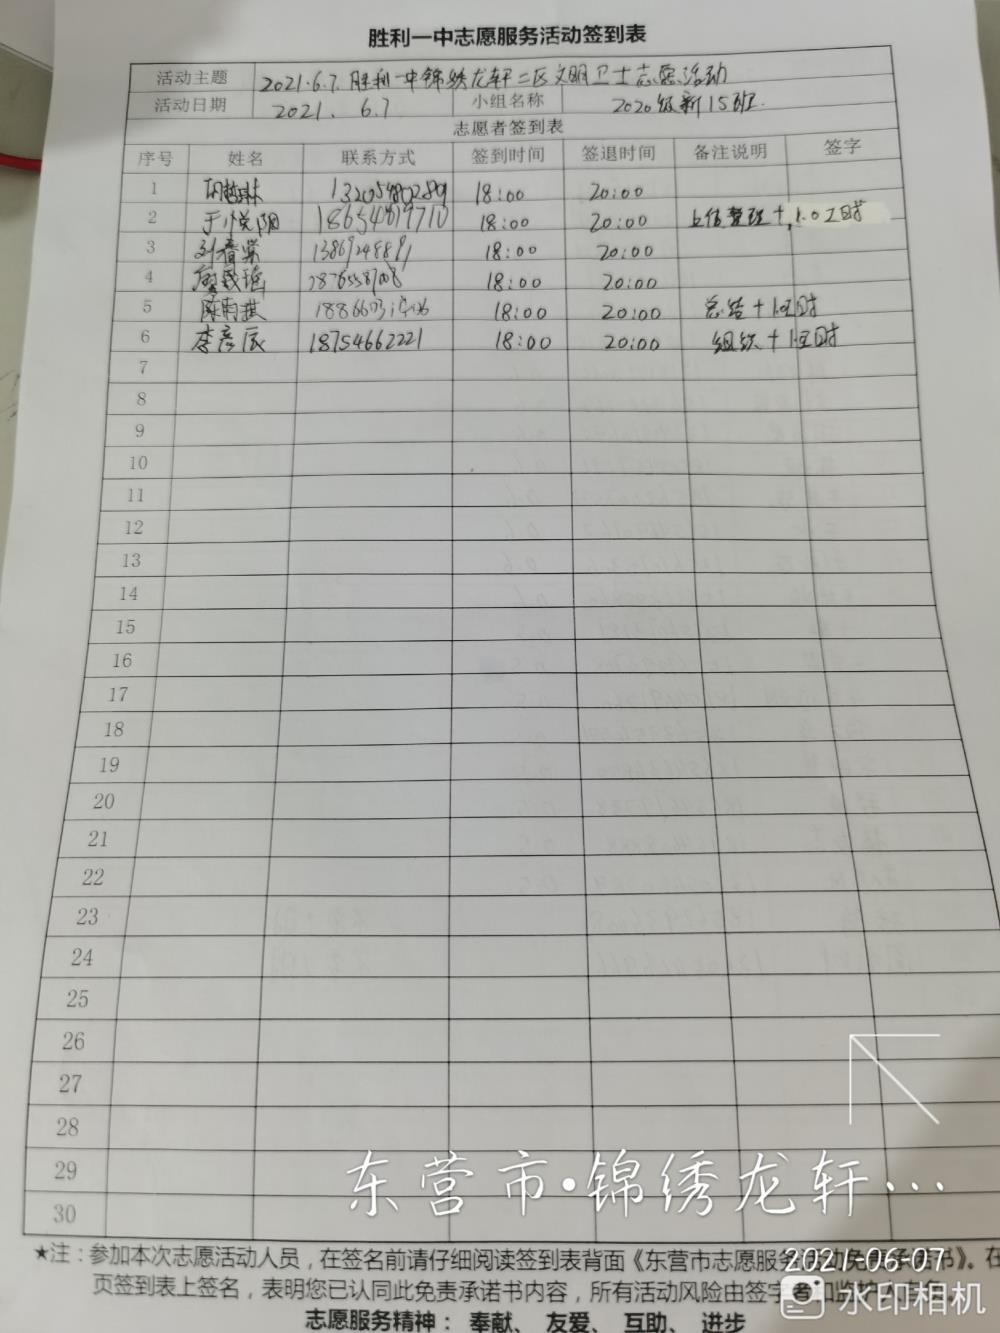 胜利一中志愿服务活动签到表
活动主题 2021.6.7.胜利一中锦绣龙轩二区文明卫士志愿活动
活动日期 2021.6.7 小组名称 2020级新15班.
志愿者签到表
序号 姓名 联系方式 签到时间 签退时间 备注说明 签字
1 18:00 20:00
2 于悦阳 18654819710 18:00 20:00 上传整理+1.0工时
3 18:00 20:00
4 18:00 20:00
5 陈雨琪 18:00 20:00 总结+1.0工时
6 李彦辰 18754662221 18:00 20:00 组织+1.0工时
7
8
9
10
11
12
13
14
15
16
17
18
19
20
21
22
23
24
25
26
27
28
29
30
东营市·锦绣龙轩...
★注：参加本次志愿活动人员，在签名前请仔细阅读签到表背面《东营市志愿服务活动免责承诺书》。在
2021.06.07
页签到表上签名，表明您已认同此免责承诺书内容，所有活动风险由签字者和监护人
水印相机
志愿服务精神： 奉献、 友爱、 互助、 进步